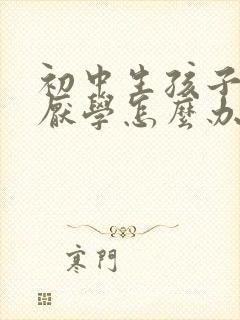 初中生孩子
厭學怎麼办
寒門